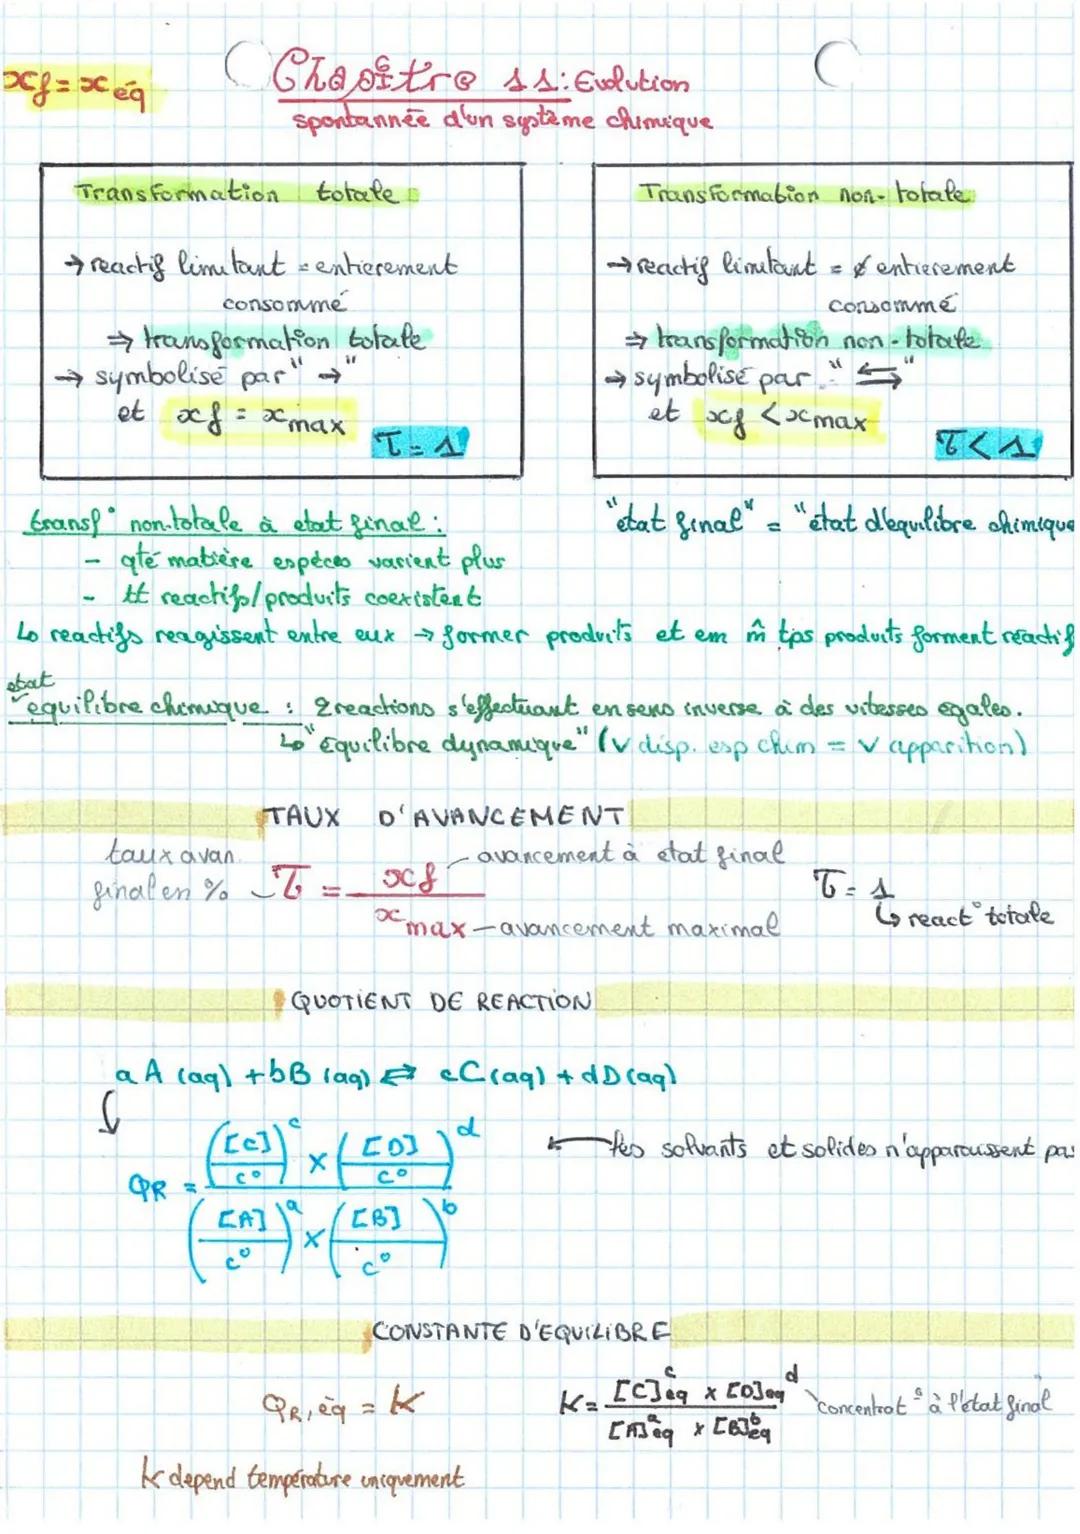 xf = xéq
Chapitre 11: Evolution
spontannée d'un système chimique
Transformation totale
→ reactif limitant = entierement
consommé
⇒ transformation totale
→ symbolisé par " → "
et xf = xmax
τ = 1
Transformation non-totale
→ reactif limitant = ≠ entierement
consommé
⇒ transformation non-totale
→ symbolisé par " ⇆ "
et xf < xmax
τ < 1
transf° non-totale à etat final :
- qté matière espèces varient plus
- tt reactifs/produits coexistent
"etat final" = "état d'equilibre chimique
↳ reactifs reagissent entre eux → former produits et em m̂ tps produits forment réactif
etat
equilibre chimique : 2 reactions s'effectuant en sens inverse à des vitesses egales.
↳ "Equilibre dynamique" (v disp. esp chim = v apparition)
TAUX D'AVANCEMENT
taux avan.
final en %
τ = xf / xmax
avancement à etat final
avancement maximal
τ = 1
↳ react° totale
QUOTIENT DE REACTION
a A (aq) + bB (aq) ⇄ cC(aq) + dD(aq)
QR = (([C]/c°)^c × ([D]/c°)^d) / (([A]/c°)^a × ([B]/c°)^b)
← les solvants et solides n'apparaissent pas
CONSTANTE D'EQUILIBRE
QR,éq = K
K = [C]^c éq × [D]^d eq / [A]^a éq × [B]^b éq
concentrat° à l'etat final
K depend température uniquement